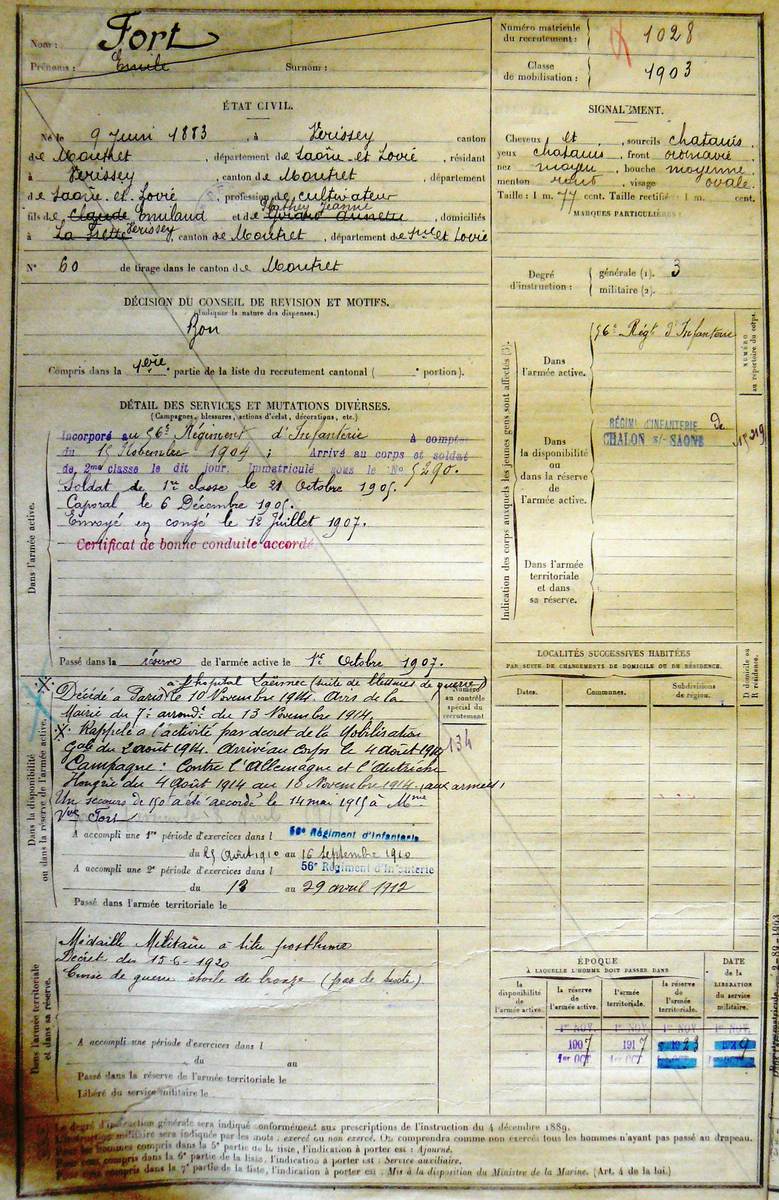 Nom : Fort
Prénoms : Emile Surnom :
Numéro matricule du recrutement : 1028
Classe de mobilisation : 1903
ÉTAT CIVIL.
Né le 9 Juin 1883, à Verissey canton
de Montret, département de Saône et Loire, résidant
à Verissey, canton de Montret, département
de Saône et Loire, profession de cultivateur
fils de Claude Emiland et de Jeanne Girard Annette, domiciliés
à La Frette Verissey, canton de Montret, département de et Loire
N° 60 de tirage dans le canton de Montret
SIGNALEMENT.
Cheveux et sourcils chatauis
yeux chatauis, front ordinaire
nez moyen, bouche moyenne
menton rond, visage ovale
Taille : 1 m. 77 cent. Taille rectifiée : 1 m. cent.
MARQUES PARTICULIÈRES :
Degré d'instruction : générale (1). 3
militaire (2).
DÉCISION DU CONSEIL DE REVISION ET MOTIFS.
(Indiquer la nature des dispenses.)
Bon
Compris dans la 1ère partie de la liste du recrutement cantonal ( portion).
DÉTAIL DES SERVICES ET MUTATIONS DIVERSES.
(Campagnes, blessures, actions d'éclat, décorations, etc.)
Dans l'armée active.
Incorporé au 56e Régiment d'Infanterie A compter
du 15 Novembre 1904 ; Arrivé au corps et soldat
de 2me classe le dit jour. Immatriculé sous le No 5290.
Soldat de 1re classe le 21 Octobre 1905.
Caporal le 6 Décembre 1905.
Envoyé en congé le 12 Juillet 1907.
Certificat de bonne conduite accordé
Passé dans la réserve de l'armée active le 1er Octobre 1907.
Indication des corps auxquels les jeunes gens sont affectés (3).
NUMÉRO au répertoire du corps.
Dans l'armée active.
56e Régt d'Infanterie
Dans la disponibilité ou dans la réserve de l'armée active.
RÉGIMt D'INFANTERIE de
CHALON s/- SAONE
Dans l'armée territoriale et dans sa réserve.
LOCALITÉS SUCCESSIVES HABITÉES
PAR SUITE DE CHANGEMENTS DE DOMICILE OU DE RÉSIDENCE.
D domicile ou R résidence.
Dates. Communes. Subdivisions de région.
Dans la disponibilité ou dans la réserve de l'armée active.
Numéro au contrôle spécial du recrutement
134
à l'hopital Laënnec (suite de blessures de guerre)
Décédé à Paris le 10 Novembre 1914. Avis de la
Mairie du 7e arrondt du 13 Novembre 1914.
Rappelé à l'activité par décret de la Mobilisation
Gale du 2 août 1914. Arrivé au Corps le 4 Août 1914
Campagne : Contre l'Allemagne et l'Autriche
Hongrie du 4 Août 1914 au 10 Novembre 1914 (aux armées)
Un secours de 150 a été accordé le 14 mai 1915 à Mme
Vve Fort
A accompli une 1re période d'exercices dans l 56e Régiment d'Infanterie
du 25 Août 1910 au 16 septembre 1910
A accompli une 2e période d'exercices dans l 56e Régiment d'Infanterie
du 13 au 29 avril 1912
Passé dans l'armée territoriale le
Dans l'armée territoriale et dans sa réserve.
Médaille Militaire à titre posthume
Décret du 15-6-1920
Croix de guerre étoile de bronze
A accompli une période d'exercices dans l
du au
Passé dans la réserve de l'armée territoriale le
Libéré du service militaire le
ÉPOQUE
À LAQUELLE L'HOMME DOIT PASSER DANS
DATE de la LIBÉRATION du service militaire.
la disponibilité de l'armée active. la réserve de l'armée active. l'armée territoriale. la réserve de l'armée territoriale.
1er NOV. 1er NOV. 1er NOV. 1er NOV.
1907 1917 1923 1929
1er OCT 1er OCT
Le degré d'instruction générale sera indiqué conformément aux prescriptions de l'instruction du 4 décembre 1889.
L'instruction militaire sera indiquée par les mots : exercé ou non exercé. On comprendra comme non exercés tous les hommes n'ayant pas passé au drapeau.
Pour les hommes compris dans la 5e partie de la liste, l'indication à porter est : Ajourné.
Pour ceux compris dans la 6e partie de la liste, l'indication à porter est : Service auxiliaire.
Pour ceux compris dans la 7e partie de la liste, l'indication à porter est : Mis à la disposition du Ministre de la Marine. (Art. 4 de la loi.)